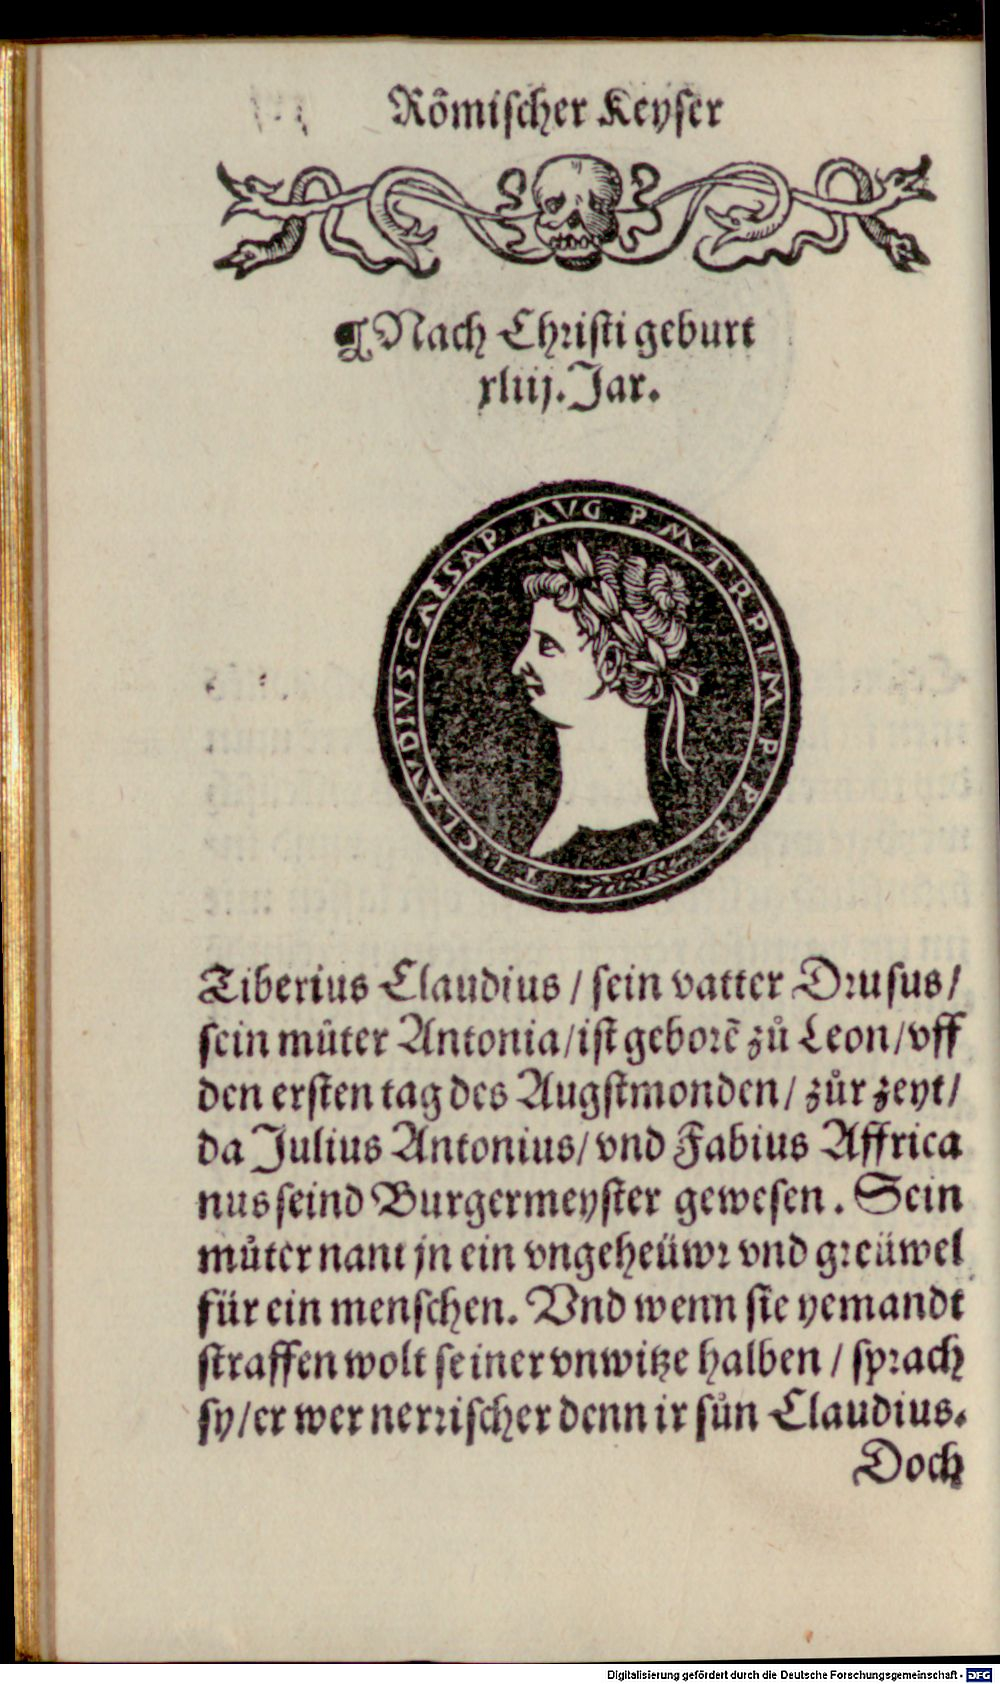 Roͤmiſcher Keyſer
¶ Nach Chꝛiſti geburt
xliij. Jar.
TI CLAVDIVS CAESAP AVG P M TRP IMP P P
Tiberius Claudius / ſein vatter Dꝛuſus /
ſein muͤter Antonia / iſt geboꝛẽ zuͦ Leon / vff
den erſten tag des Augſtmonden / zuͦr zeyt /
da Julius Antonius / vnd Fabius Affrica
nus ſeind Burgermeyſter geweſen. Sein
muͦter nant jn ein vngeheüwꝛ vnd gꝛeüwel
für ein menſchen. Vnd wenn ſie yemandt
ſtraffen wolt ſeiner vnwitze halben / ſpꝛach
ſy / er wer nerꝛiſcher denn ir ſuͦn Claudius.
Doch
Digitalisierung gefördert durch die Deutsche Forschungsgemeinschaft - DFG